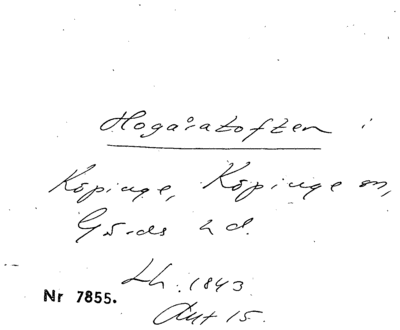 Hogåratoften i
Köpinge, Köpinge sn,
Gärds hd.
Lh. 1843
Nr 7855.
Akt 15.